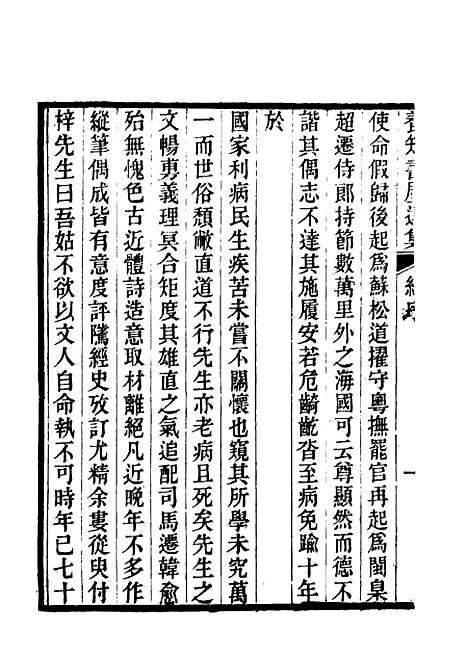 養知書屋遺集 總序 一
使命假歸後起為蘇松道擢守粵撫罷官再起為閩臬
超遷侍郎持節數萬里外之海國可云尊顯然而德不
諧其偶志不達其施履安若危齮齕沓至病免踰十年
於
國家利病民生疾苦未嘗不關懷也窺其所學未究萬
一而世俗頹敝直道不行先生亦老病且死矣先生之
文暢勇義理冥合矩度其雄直之氣追配司馬遷韓愈
殆無愧色古近體詩造意取材離絕凡近晚年不多作
縱筆偶成皆有意度評隲經史攷訂尤精余婁從臾付
梓先生曰吾姑不欲以文人自命執不可時年已七十